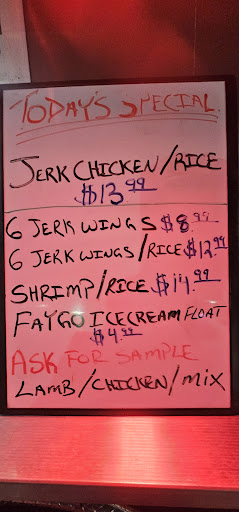 TODAY'S SPECIAL
JERK CHICKEN/RICE
$13.99
6 JERK WINGS $8.99
6 JERK WINGS/RICE $12.99
SHRIMP/RICE $14.99
FAYGO ICECREAM FLOAT
$4.99
ASK FOR SAMPLE
LAMB/CHICKEN/MIX